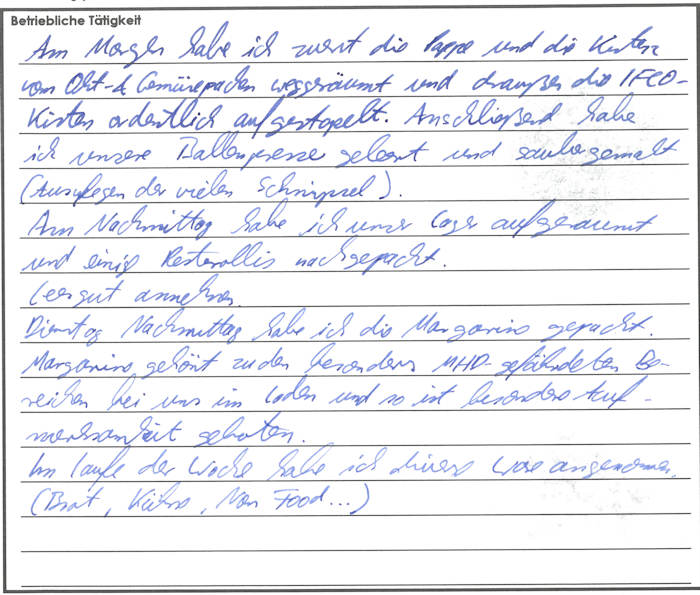 Betriebliche Tätigkeit
Am Morgen habe ich zuerst die Pappe und die Kisten
vom Obst- & Gemüsepacken weggeräumt und draußen die IFCO-
Kisten ordentlich aufgestapelt. Anschließend habe
ich unsere Ballenpresse geleert und sauber gemacht
(Ausfegen der vielen Schnipsel).
Am Nachmittag habe ich unser Lager aufgeräumt
und einige Restrollis nachgepackt.
Leergut annehmen.
Dienstag Nachmittag habe ich die Margarine gepackt.
Margarine gehört zu den besonders MHD-gefährdeten Be-
reichen bei uns im Laden und so ist besondere Auf-
merksamkeit geboten.
Im Laufe der Woche habe ich diverse Ware angenommen.
(Brot, Kühlung, Non Food...)